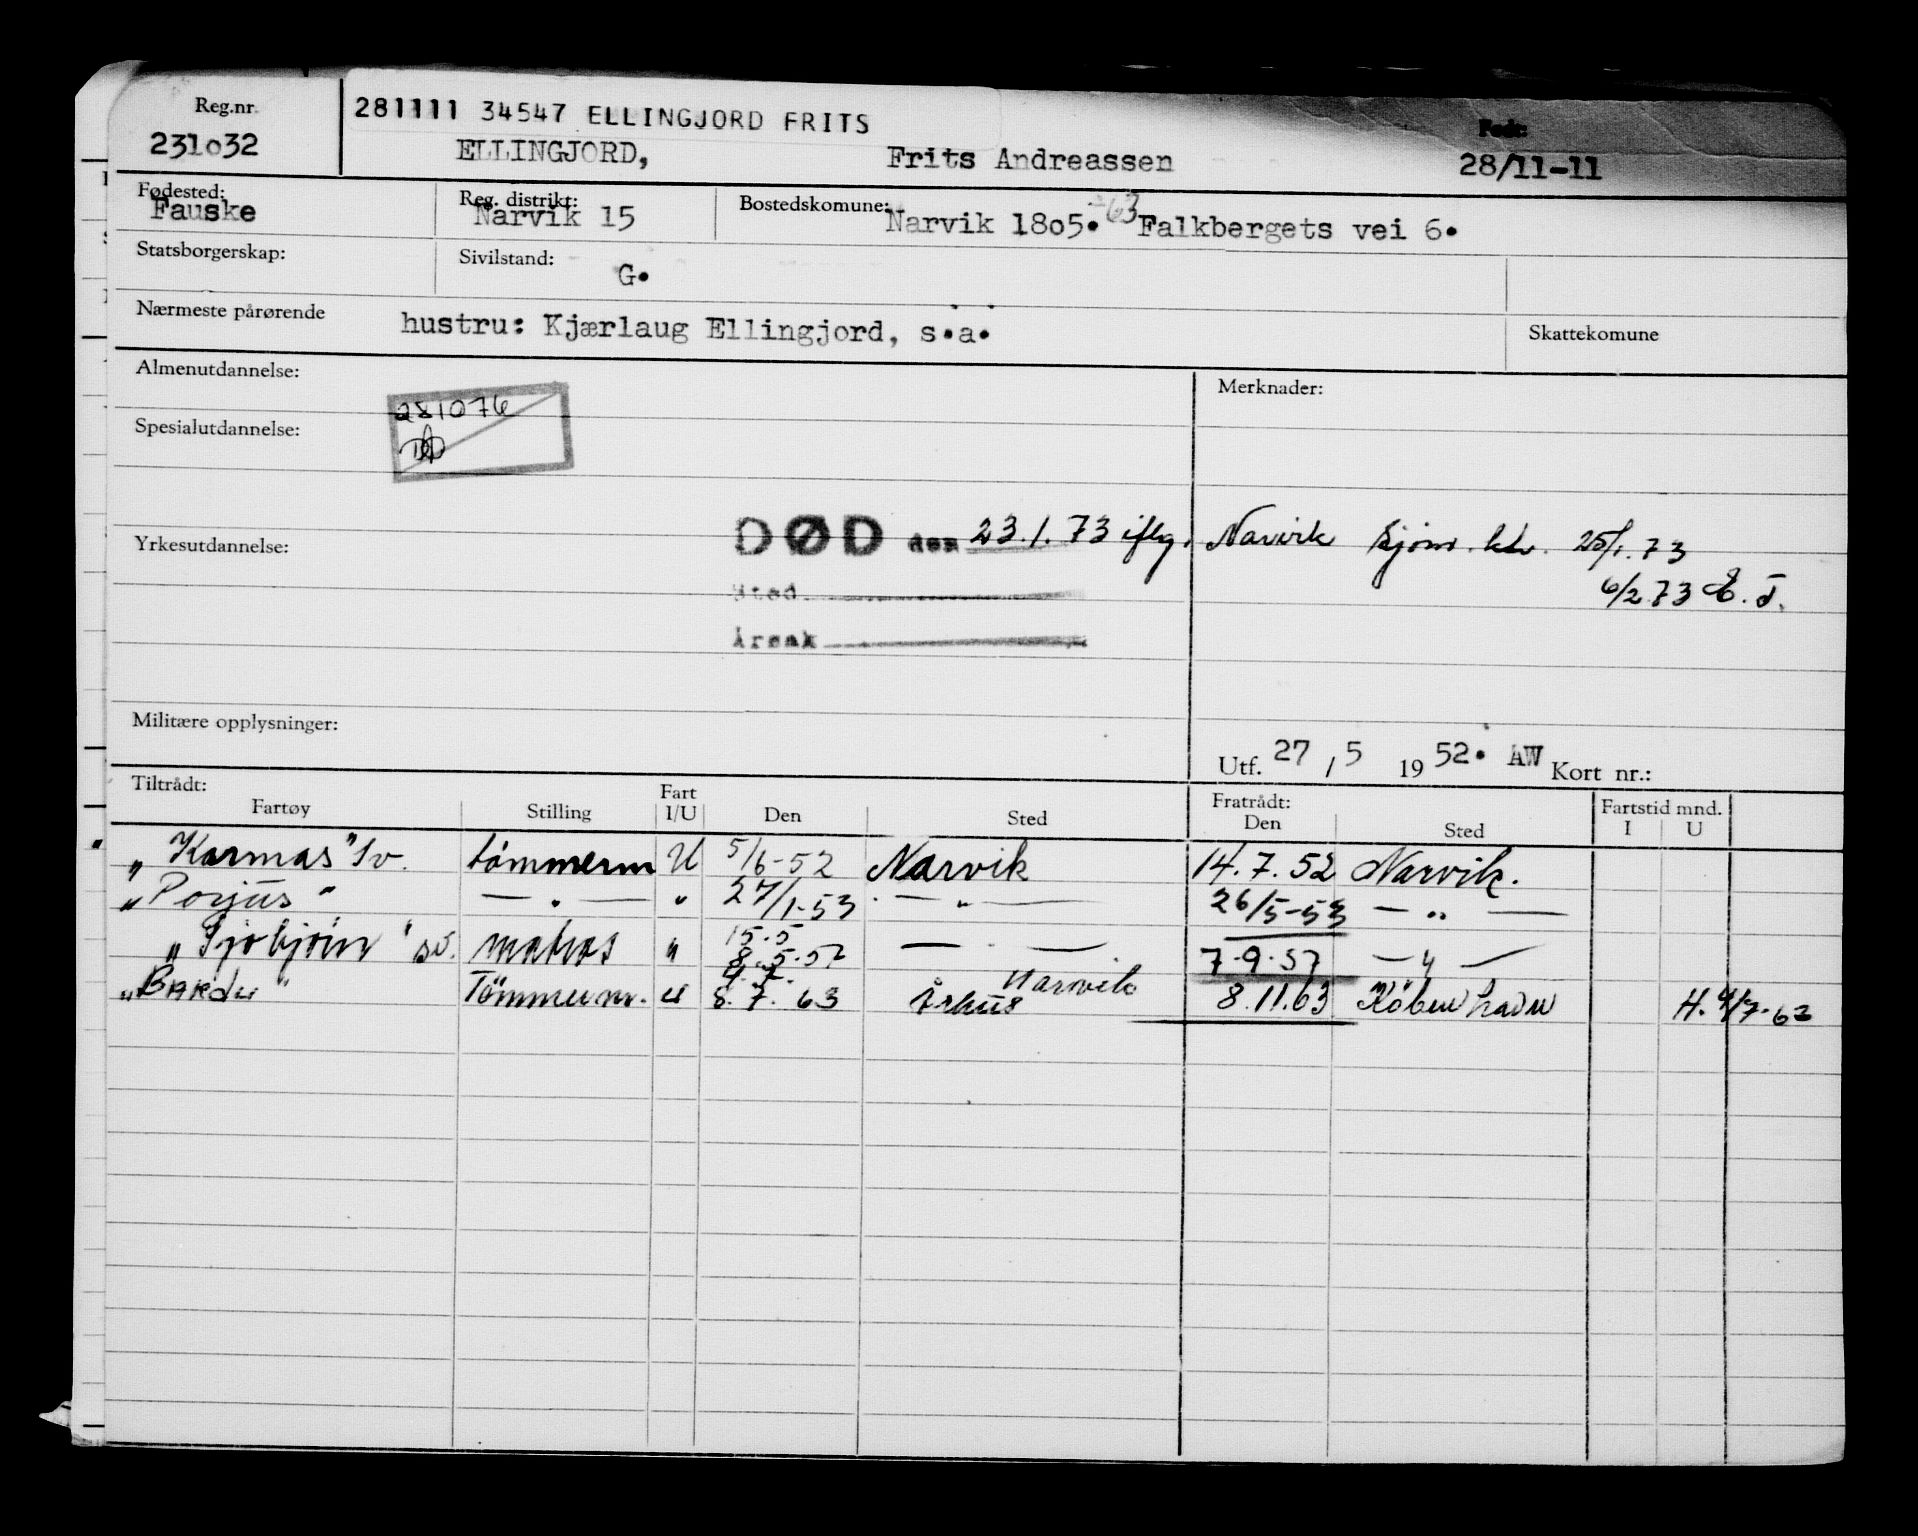 Reg.nr. 281111 34547 ELLINGJORD FRITS Født:
231o32 ELLINGJORD, Frits Andreassen 28/11-11
Fødested: Reg. distrikt: Bostedskomune: -63
Fauske Narvik 15 Narvik 18o5. Falkbergets vei 6.
Statsborgerskap: Sivilstand: G.
Nærmeste pårørende hustru: Kjærlaug Ellingjord, s.a. Skattekomune
Almenutdannelse: Merknader:
281076
Spesialutdannelse:
DØD den 23.1.73 iflg. Narvik sjøm. ktr. 25/1.73
Yrkesutdannelse:
Sted 6/2 73 E.T.
Årsak
Militære opplysninger:
Utf. 27 / 5 19 52. AW Kort nr.:
Tiltrådt: Fratrådt: Fartstid mnd.
Fartøy Stilling Fart I/U Den Sted Den Sted I U
"Karmas" Sv. tömmerm U 5/6-52 Narvik 14.7.52 Narvik.
"Porjus" — " — " 27/1-53 — " — 26/5-53 — " —
15.5
" sv. matros " 8.5.57 — " — 7-9-57 — " —
4.7. Narvik
"Bardu" Tömmerm. u 8.7.63 Århus 8.11.63 Köbenhavn H. 9/7-63